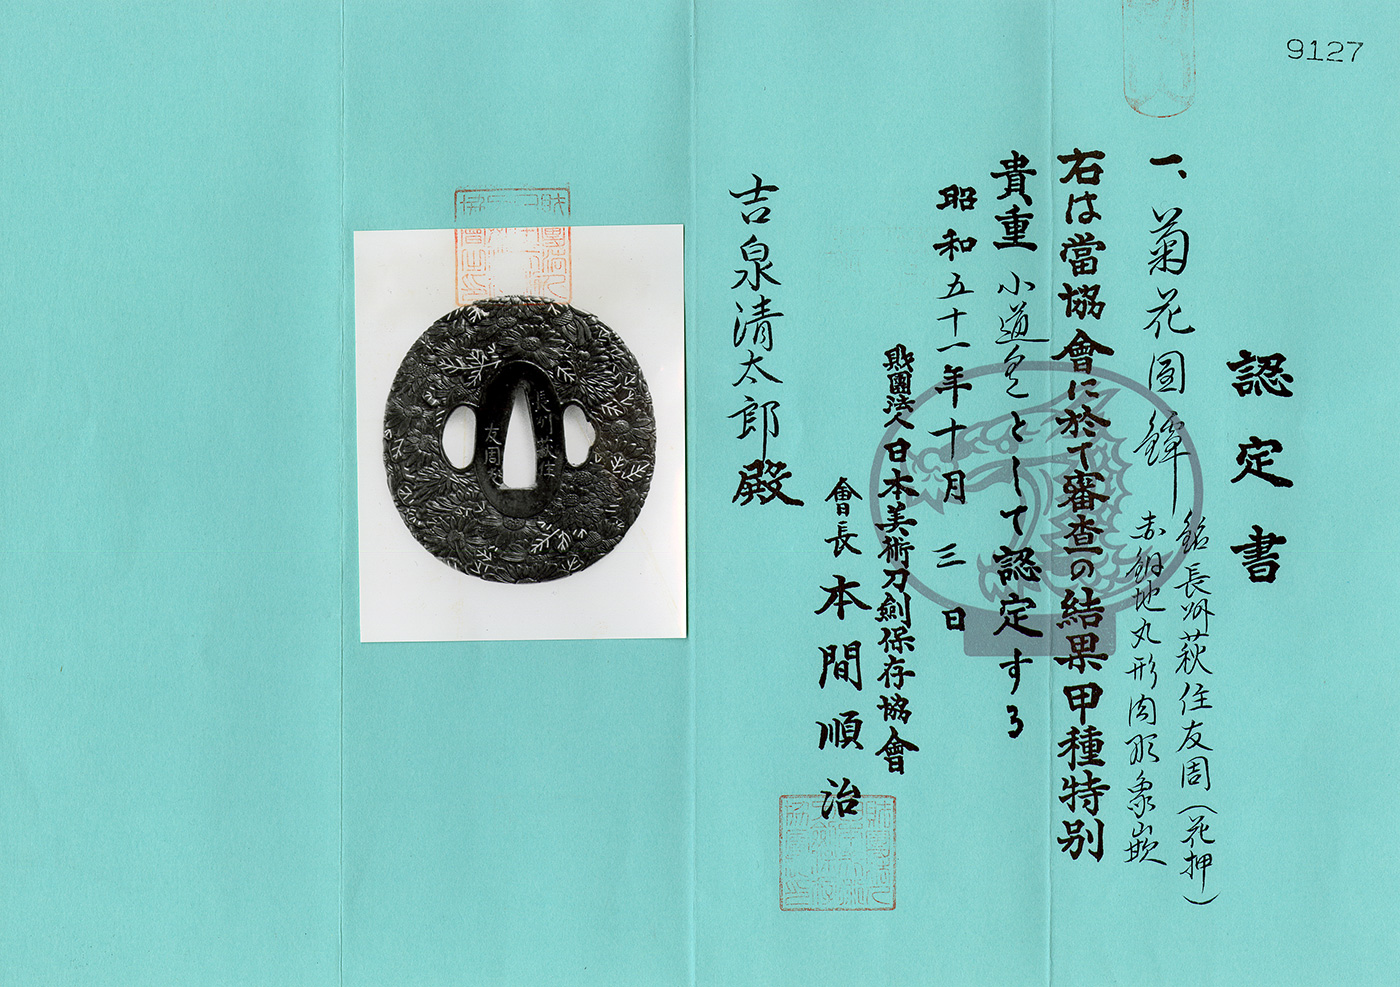 9127
認定書
一、菊花図鐔
銘 長州萩住友周(花押)
赤銅地丸形肉彫象嵌
右は當協會に於て審査の結果甲種特別
貴重小道具として認定する
昭和五十一年十月三日
財團法人日本美術刀劍保存協會
會長本間順治
吉泉清太郎殿
長州萩住
友周